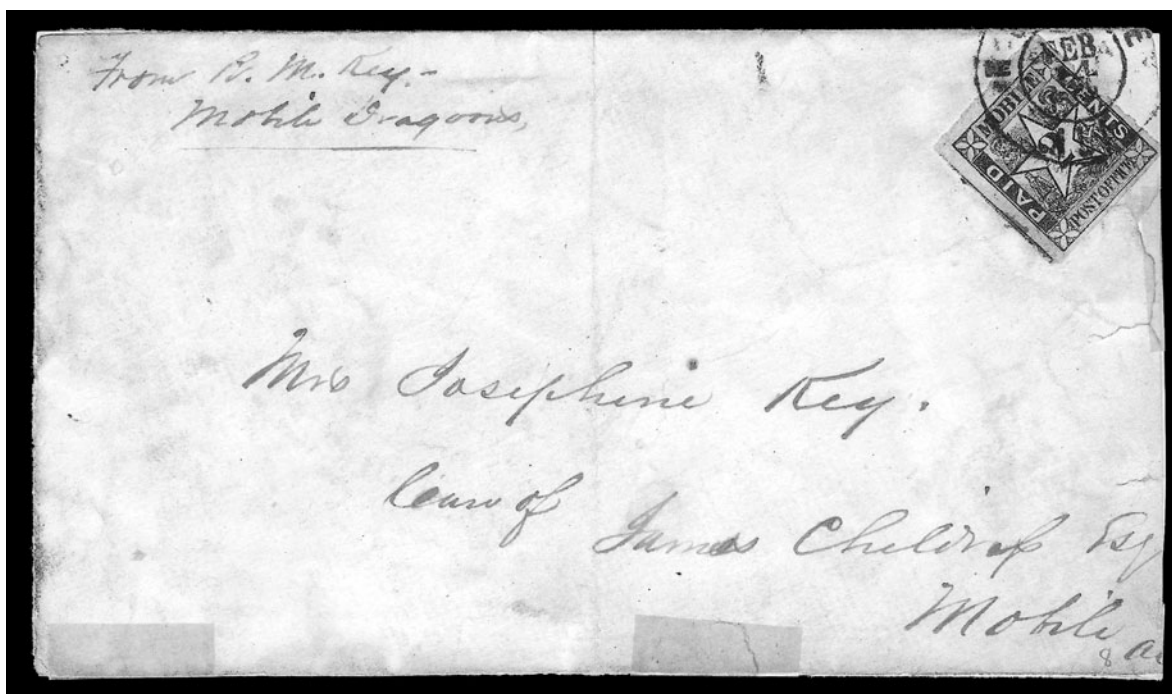 From R. M. Key -
Mobile Dragoons,
FEB
14
MOBILE
2 CENTS
PAID
2
POST OFFICE
Mrs Josephine Key.
Care of
James Childress Esq
Mobile
8